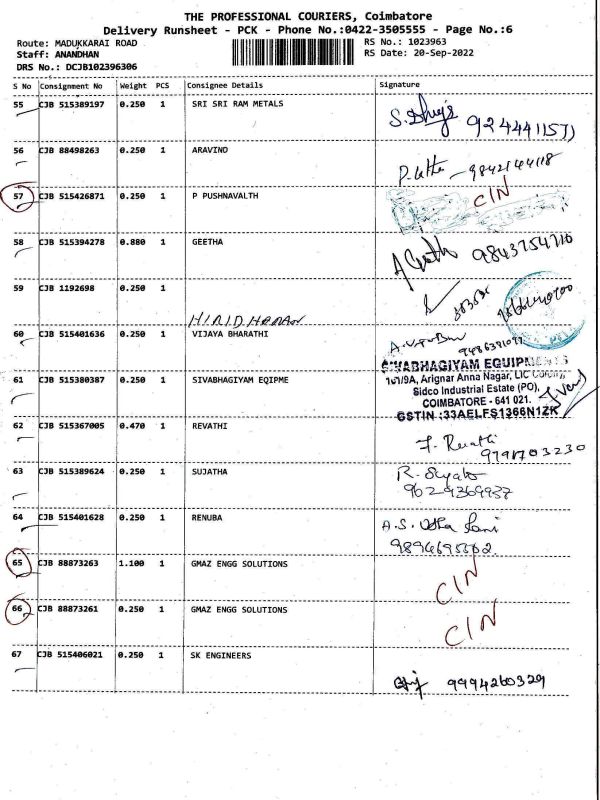 THE PROFESSIONAL COURIERS, Coimbatore
Delivery Runsheet - PCK - Phone No.:0422-3505555 - Page No.:6
Route: MADUKKARAI ROAD
RS No.: 1023963
Staff: ANANDHAN
RS Date: 20-Sep-2022
DRS No.: DCJB102396306
S No Consignment No Weight PCS Consignee Details Signature
55 CJB 515389197 0.250 1 SRI SRI RAM METALS
56 CJB 88498263 0.250 1 ARAVIND
57 CJB 515426871 0.250 1 P PUSHNAVALTH CIN
58 CJB 515394278 0.880 1 GEETHA 9843754710
59 CJB 1192698 0.250 1
60 CJB 515401636 0.250 1 VIJAYA BHARATHI
SIVABHAGIYAM EQUIPMENTS
161/9A, Arignar Anna Nagar, LIC Colony,
61 CJB 515380387 0.250 1 SIVABHAGIYAM EQIPME Sidco Industrial Estate (PO),
COIMBATORE - 641 021.
GSTIN :33AELFS1366N1ZK
62 CJB 515367005 0.470 1 REVATHI
9791703230
63 CJB 515389624 0.250 1 SUJATHA
9629369937
64 CJB 515401628 0.250 1 RENUBA A.S. Usha Rani
65 CJB 88873263 1.100 1 GMAZ ENGG SOLUTIONS CIN
66 CJB 88873261 0.250 1 GMAZ ENGG SOLUTIONS CIN
67 CJB 515406021 0.250 1 SK ENGINEERS
9994260329